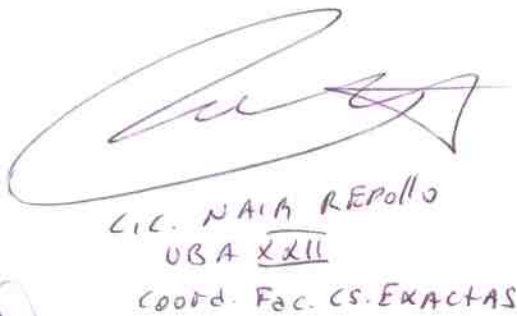 LIC. NAIR REPOllO
UBA XXII
COORd. Fac. CS. EXACtAS